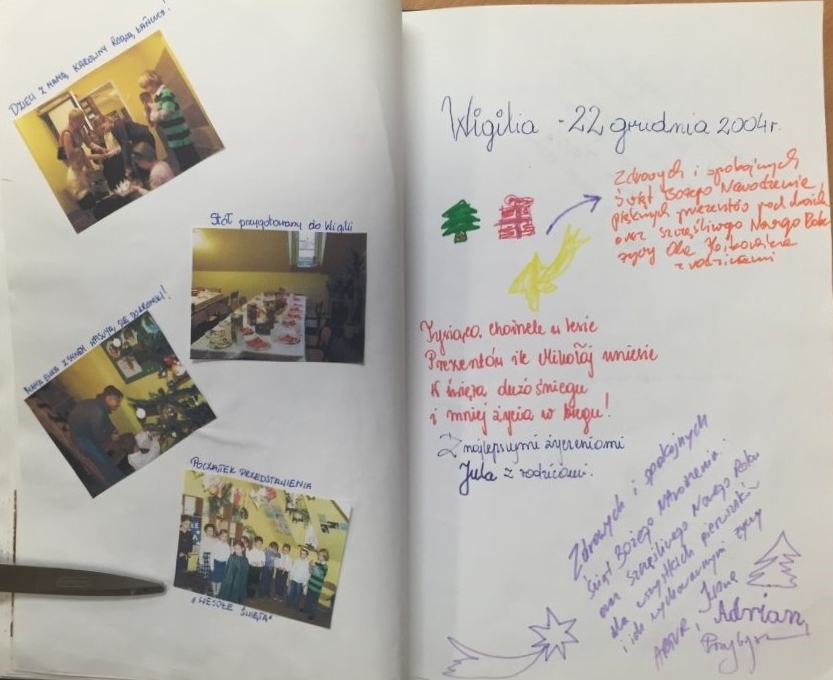 DZIECI Z MAMĄ KAROLINY ROBIĄ ŁAŃCUCH!
Stół przygotowany do Wigilii
ELIZA Z SYNEM
POCZĄTEK PRZEDSTAWIENIA
"WESOŁE ŚWIĘTA"
Wigilia - 22 grudnia 2004r.
Zdrowych i spokojnych
Świąt Bożego Narodzenia,
pięknych prezentów pod
oraz szczęśliwego Nowego Roku
życzy Ola
z rodzicami
Tysiąca choinek w lesie
Prezentów ile Mikołaj uniesie
W święta dużo śniegu
i mniej życia w biegu!
Z najlepszymi życzeniami
Jula z rodzicami.
Zdrowych i spokojnych
Świąt Bożego Narodzenia
oraz szczęśliwego Nowego Roku
dla wszystkich pierwszaków
i ich wychowawczyni życzy
ARTUR, Iwona
Adrian